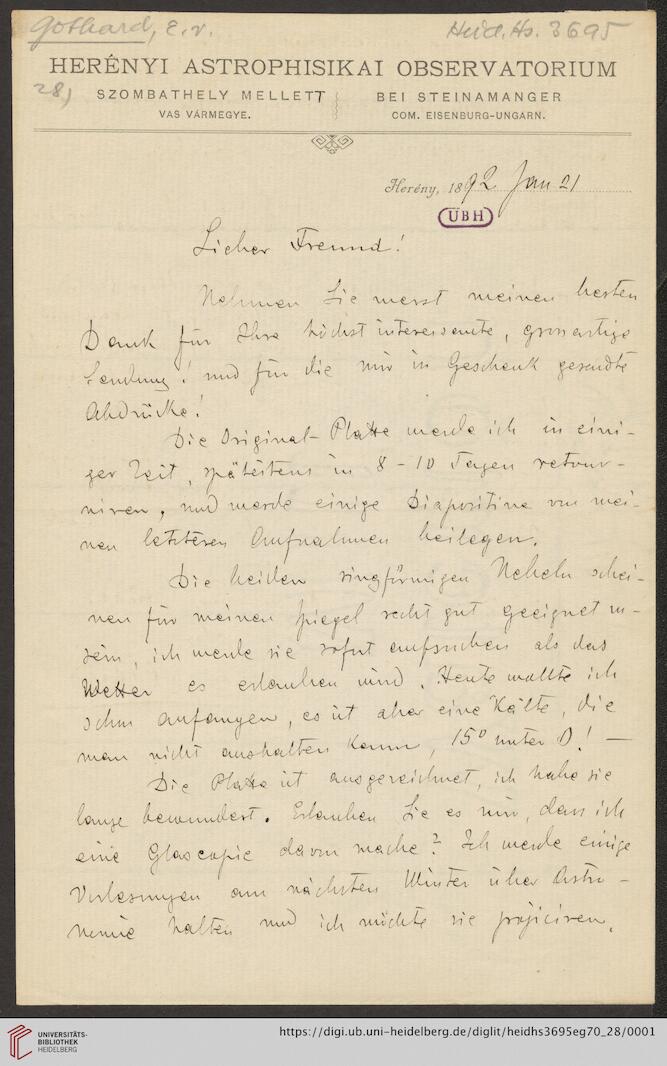 Gothard, E. v.
Heid. Hs. 3695
28)
HERÉNYI ASTROPHISIKAI OBSERVATORIUM
SZOMBATHELY MELLETT
VAS VÁRMEGYE.
BEI STEINAMANGER
COM. EISENBURG-UNGARN.
Herény, 1892 Jan 21
UBH
Lieber Freund!
Nehmen Sie zuerst meinen besten
Dank für Ihre höchst interessante, grossartige
Sendung! und für die mir in Geschenk gesendte
Abdrücke!
Die Original-Platte werde ich in eini-
ger Zeit, spätestens in 8-10 Tagen retour-
niren, und werde einige Diapositive von mei-
nen letzteren Aufnahmen beilegen.
Die beiden ringförmigen Nebeln schei-
nen für meinen Spiegel recht gut geeignet zu
sein, ich werde sie sofort aufsuchen als das
Wetter es erlauben wird. Heute wollte ich
schon anfangen, es ist aber eine Kälte, die
man nicht aushalten kann, 15° unter 0! —
Die Platte ist ausgezeichnet, ich habe sie
lange bewundert. Erlauben Sie es mir, dass ich
eine Glascopie davon mache? Ich werde einige
Vorlesungen am nächsten Winter über Astro-
nomie halten und ich möchte sie projiciren.
UNIVERSITÄTS-
BIBLIOTHEK
HEIDELBERG
https://digi.ub.uni-heidelberg.de/diglit/heidhs3695eg70_28/0001